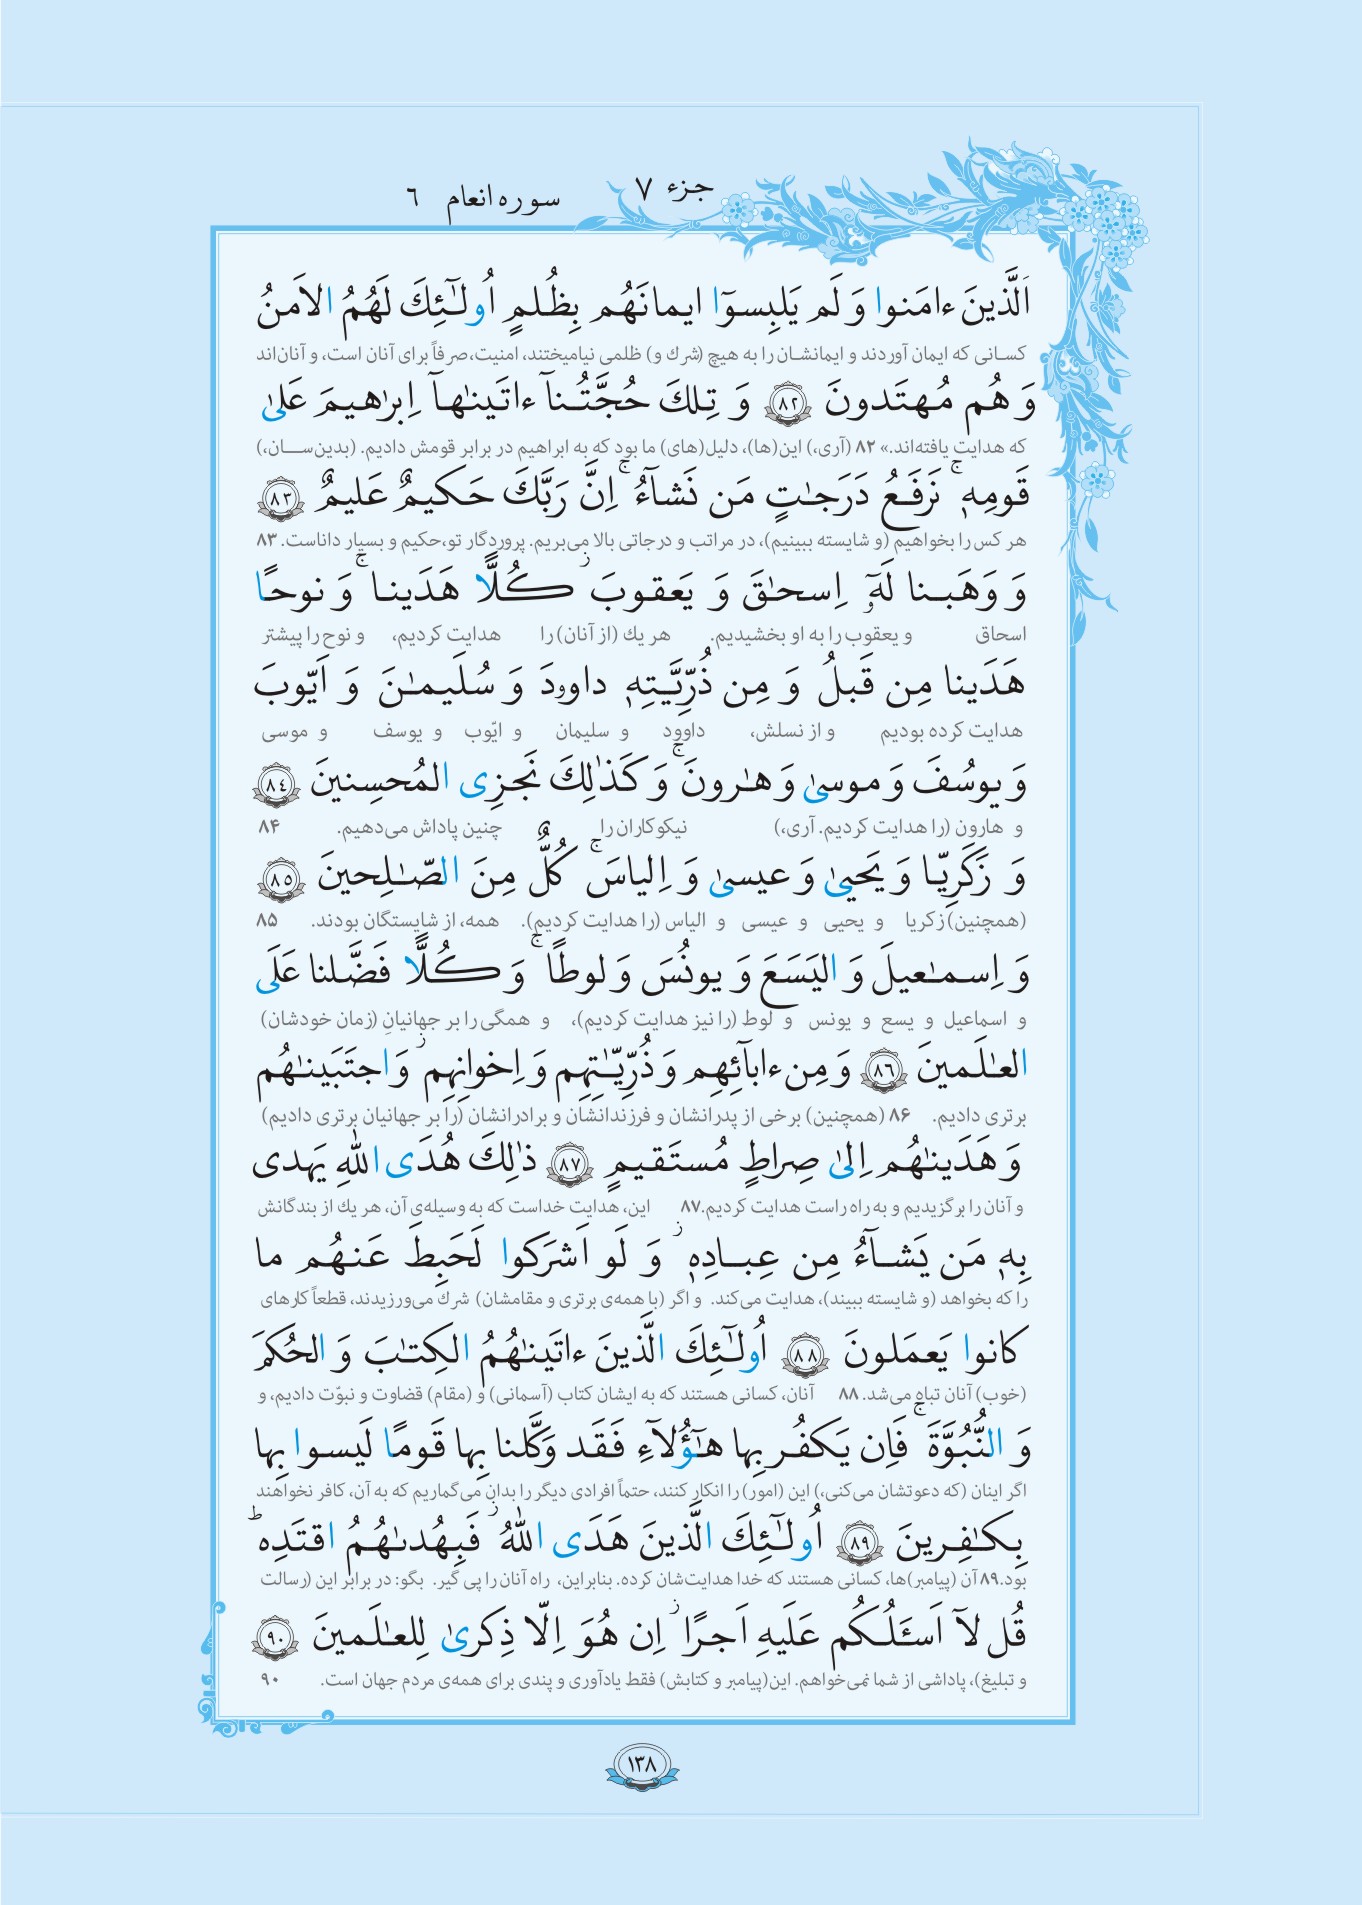 جزء ۷
سوره انعام ٦
اَلَّذينَ ءامَنوا وَ لَم يَلبِسوٓا ايمانَهُم بِظُلمٍ اُولـٰٓئِكَ لَهُمُ الاَمنُ
کسانی که ایمان آوردند و ایمانشان را به هیچ (شرك و) ظلمی نیامیختند، امنیت، صرفاً برای آنان است، و آنان‌اند
وَ هُم مُهتَدونَ ﴿٨٢﴾ وَ تِلكَ حُجَّتُنآ ءاتَينٰهآ اِبرٰهيمَ عَلىٰ
که هدایت یافته‌اند.» ۸۲ (آری،) این(ها)، دلیل(های) ما بود که به ابراهیم در برابر قومش دادیم. (بدین‌ســان،)
قَومِهٖ ۚ نَرفَعُ دَرَجـٰتٍ مَن نَشآءُ ۚ اِنَّ رَبَّكَ حَكيمٌ عَليمٌ ﴿٨٣﴾
هر کس را بخواهیم (و شایسته ببینیم)، در مراتب و درجاتی بالا می‌بریم. پروردگار تو،حکیم و بسیار داناست. ۸۳
وَ وَهَبنا لَهٗٓ اِسحـٰقَ وَ يَعقوبَ ۚز كُلًّا هَدَينا ۚ وَ نوحًا
اسحاق و یعقوب را به او بخشیدیم. هر یك (از آنان) را هدایت کردیم، و نوح را پیشتر
هَدَينا مِن قَبلُ وَ مِن ذُرِّيَّتِهٖ داوودَ وَ سُلَيمـٰنَ وَ اَيّوبَ
هدایت کرده بودیم و از نسلش، داوود و سلیمان و ایّوب و یوسف و موسی
وَ يوسُفَ وَ موسىٰ وَ هـٰرونَ ۚ وَ كَذٰلِكَ نَجزِى المُحسِنينَ ﴿٨٤﴾
و هارون (را هدایت کردیم. آری،) نیکوکاران را چنین پاداش می‌دهیم. ۸۴
وَ زَكَرِيّا وَ يَحيىٰ وَ عيسىٰ وَ اِلياسَ ۚ كُلٌّ مِنَ الصّـٰلِحينَ ﴿٨٥﴾
(همچنین) زکریا و یحیی و عیسی و الیاس (را هدایت کردیم). همه، از شایستگان بودند. ۸۵
وَ اِسمـٰعيلَ وَ اليَسَعَ وَ يونُسَ وَ لوطًا ۚ وَ كُلًّا فَضَّلنا عَلَى
و اسماعیل و یسع و یونس و لوط (را نیز هدایت کردیم)، و همگی را بر جهانیانِ (زمان خودشان)
العـٰلَمينَ ﴿٨٦﴾ وَ مِن ءابآئِهِم وَ ذُرِّيّـٰتِهِم وَ اِخوانِهِم ز وَ اجتَبَينـٰهُم
برتری دادیم. ۸۶ (همچنین) برخی از پدرانشان و فرزندانشان و برادرانشان (را بر جهانیان برتری دادیم)
وَ هَدَينـٰهُم اِلىٰ صِراطٍ مُستَقيمٍ ﴿٨٧﴾ ذٰلِكَ هُدَى اللّٰهِ يَهدى
و آنان را برگزیدیم و به راه راست هدایت کردیم.۸۷ این، هدایت خداست که به وسیله‌ی آن، هر یك از بندگانش
بِهٖ مَن يَشـآءُ مِن عِبـادِهٖ ز وَ لَو اَشرَكوا لَحَبِطَ عَنهُم ما
را که بخواهد (و شایسته ببیند)، هدایت می‌کند. و اگر (با همه‌ی برتری و مقامشان) شرك می‌ورزیدند، قطعاً کارهای
كانوا يَعمَلونَ ﴿٨٨﴾ اُولـٰٓئِكَ الَّذينَ ءاتَينـٰهُمُ الكِتـٰبَ وَ الحُكمَ
(خوب) آنان تباه می‌شد. ۸۸ آنان، کسانی هستند که به ایشان کتاب (آسمانی) و (مقام) قضاوت و نبوّت دادیم، و
وَ النُّبُوَّةَ ۚ فَاِن يَكفُر بِها هـٰٓؤُلآءِ فَقَد وَكَّلنا بِها قَومًا لَيسوا بِها
اگر اینان (که دعوتشان می‌کنی،) این (امور) را انکار کنند، حتماً افرادی دیگر را بدان می‌گماریم که به آن، کافر نخواهند
بِكـٰفِرينَ ﴿٨٩﴾ اُولـٰٓئِكَ الَّذينَ هَدَى اللّٰهُ ز فَبِهُدىٰهُمُ اقتَدِه ؕ
بود.۸۹ آن (پیامبر)ها، کسانی هستند که خدا هدایت‌شان کرده. بنابراین، راه آنان را پی گیر. بگو: در برابر این (رسالت
قُل لآ اَسـَٔلُكُم عَلَيهِ اَجرًا ز اِن هُوَ اِلّا ذِكرىٰ لِلعـٰلَمينَ ﴿٩٠﴾
و تبلیغ)، پاداشی از شما نمی‌خواهم. این(پیامبر و کتابش) فقط یادآوری و پندی برای همه‌ی مردم جهان است. ۹۰
۱۳۸